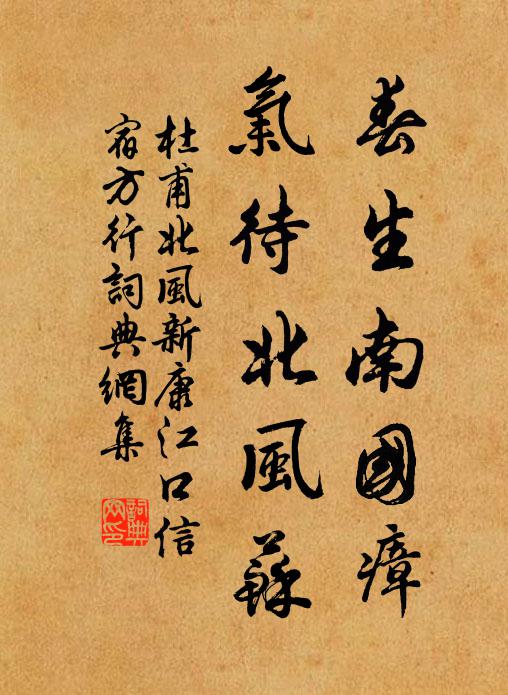 春生南國瘴
氣待北風蘇
杜甫北風新康江口信
宿方行詞典網集
詞典
網印